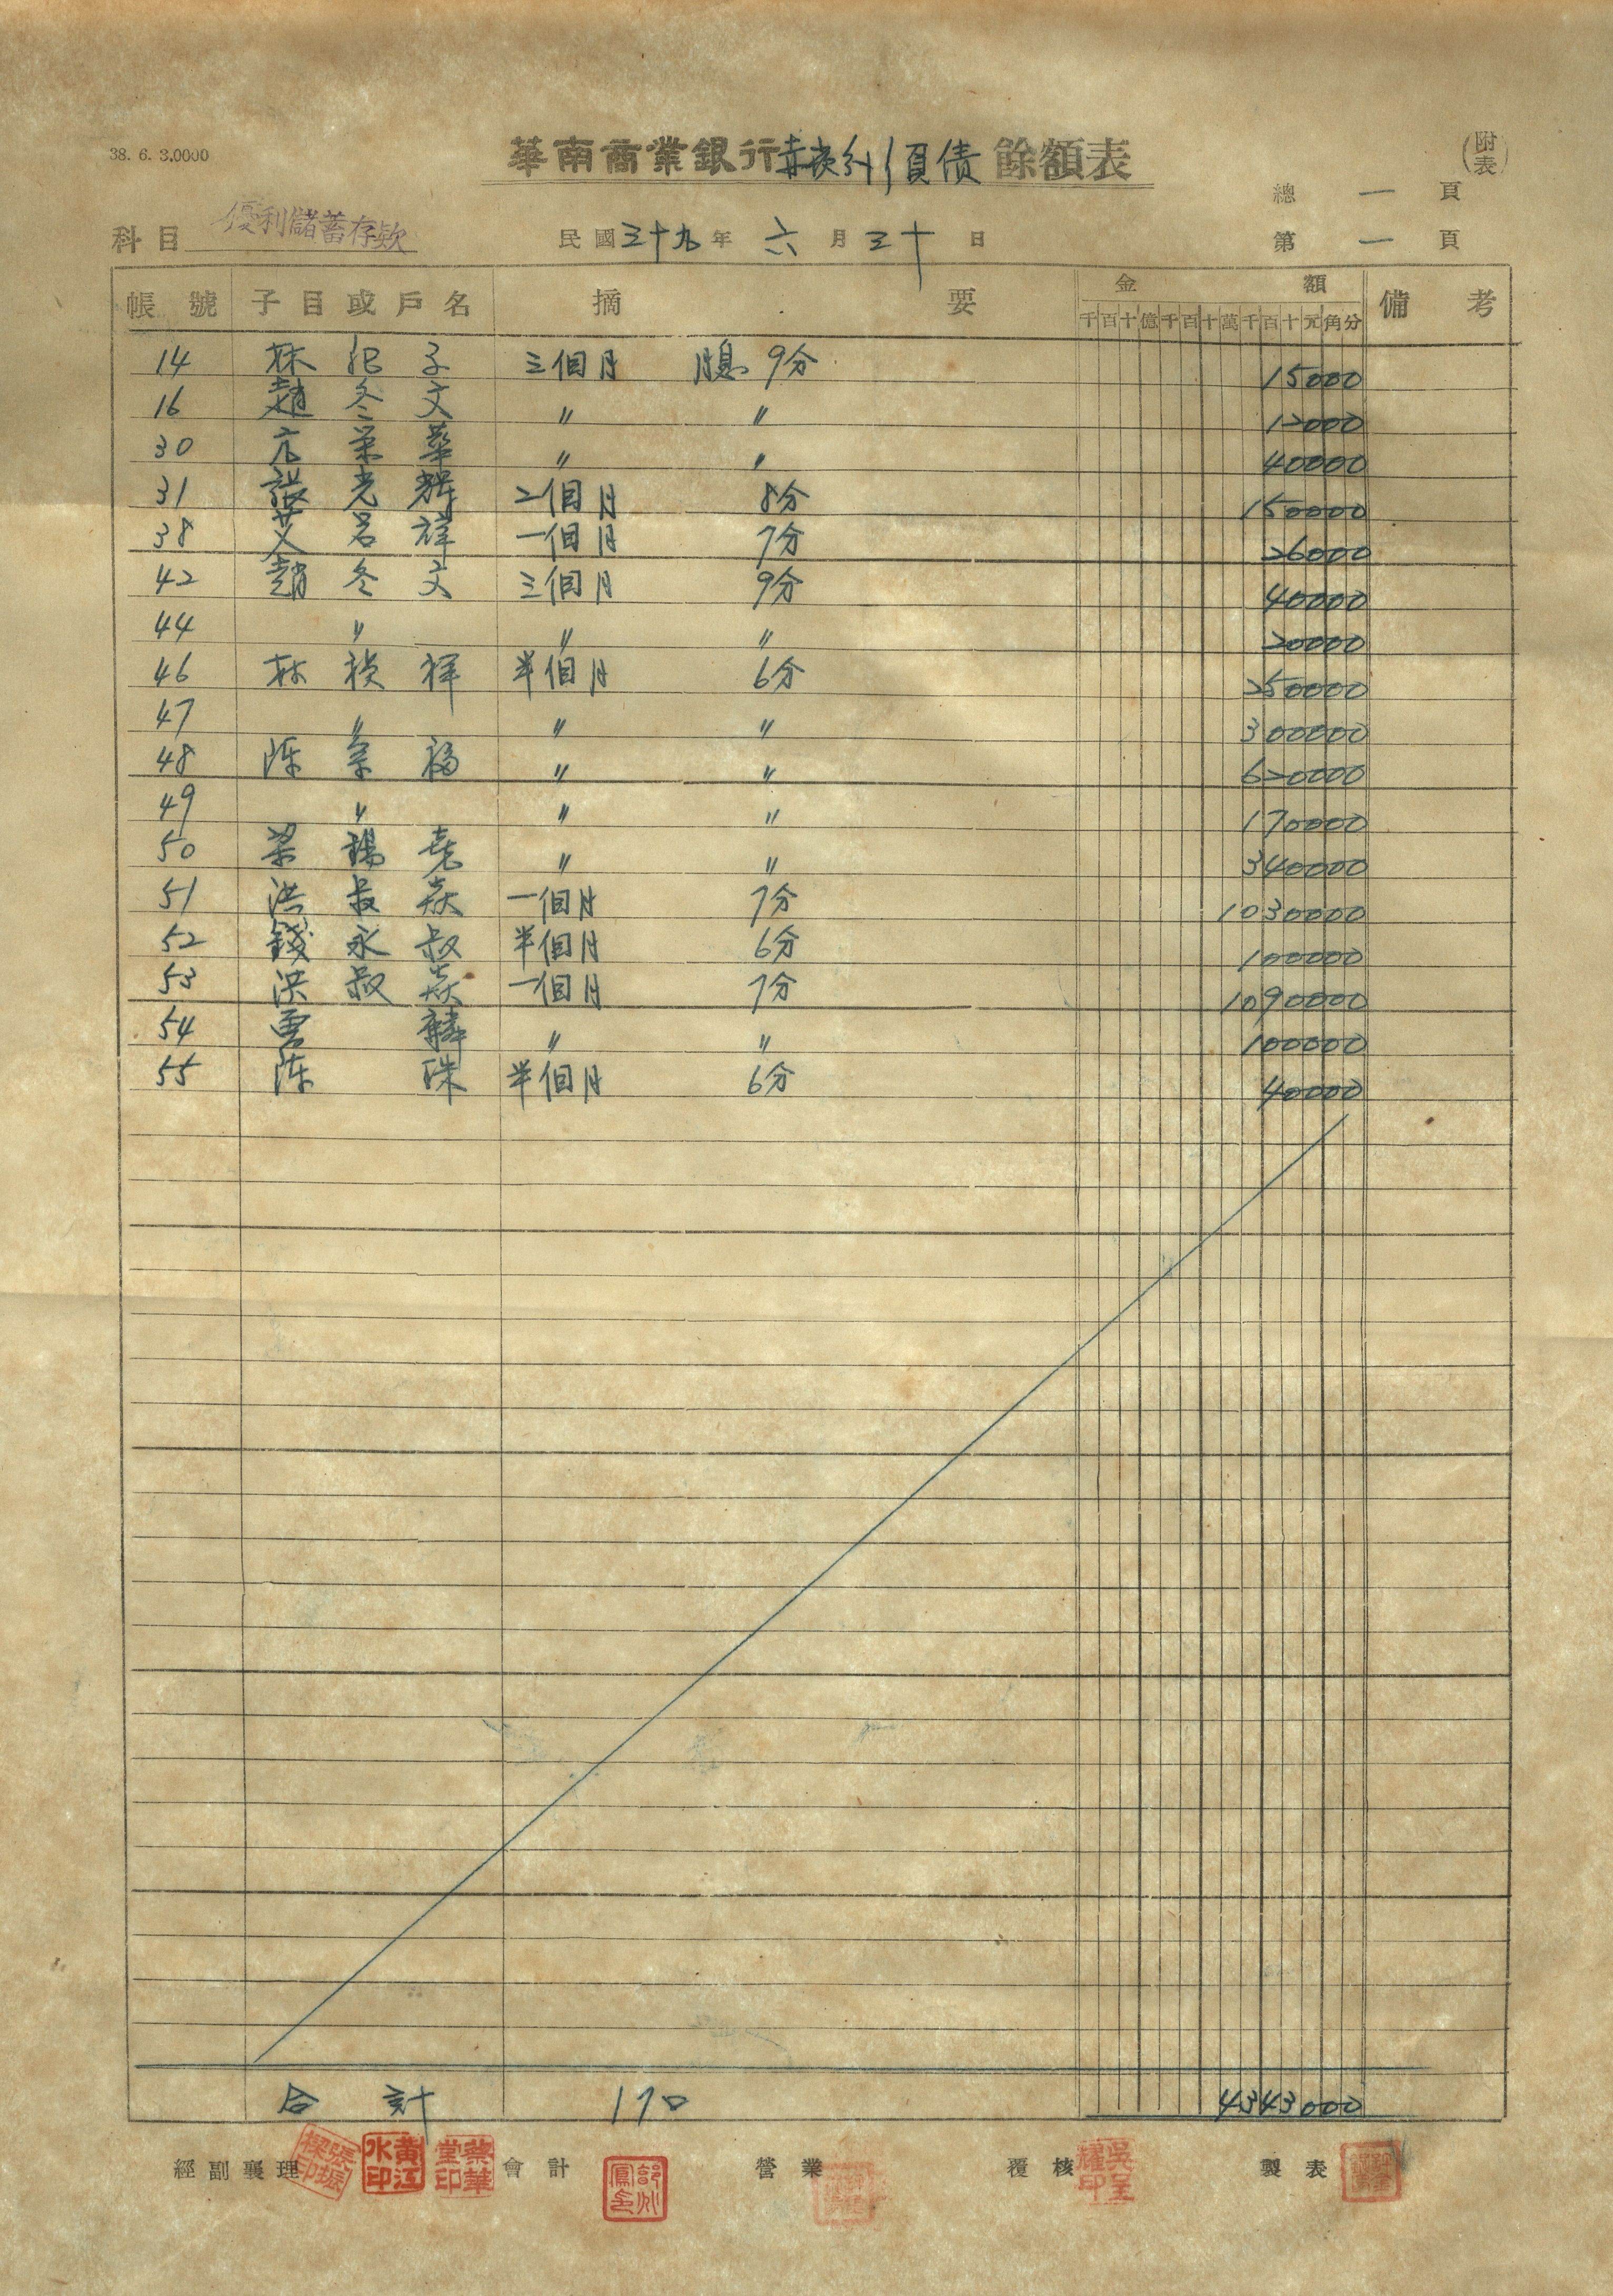 38. 6. 3.0000
華南商業銀行赤崁分行負債餘額表
(附表)
總 一 頁
科目 優利儲蓄存款
民國三十九年 六 月 三十 日
第 一 頁
帳號 子目或戶名 摘要 金額 備考
千百十億千百十萬千百十元角分
14 林 紀 子 三個月 月息 9分 15000
16 趙 冬 文 〃 〃 12000
30 榮 華 〃 〃 40000
31 張 光 輝 二個月 8分 150000
38 艾 君 祥 一個月 7分 26000
42 趙 冬 文 三個月 9分 40000
44 〃 〃 〃 20000
46 林 禎 祥 半個月 6分 250000
47 〃 〃 〃 300000
48 陈 景 福 〃 〃 620000
49 〃 〃 〃 170000
50 梁 錫 堯 〃 〃 340000
51 洪 叔 焱 一個月 7分 1030000
52 錢 永 叔 半個月 6分 100000
53 洪 叔 焱 一個月 7分 1090000
54 麟 〃 〃 100000
55 陈 珠 半個月 6分 40000
合計 17口 4343000
經副襄理 會計 營業 覆核 製表
張振樑印 黃江水印 蔡華堂印 吳呈耀印